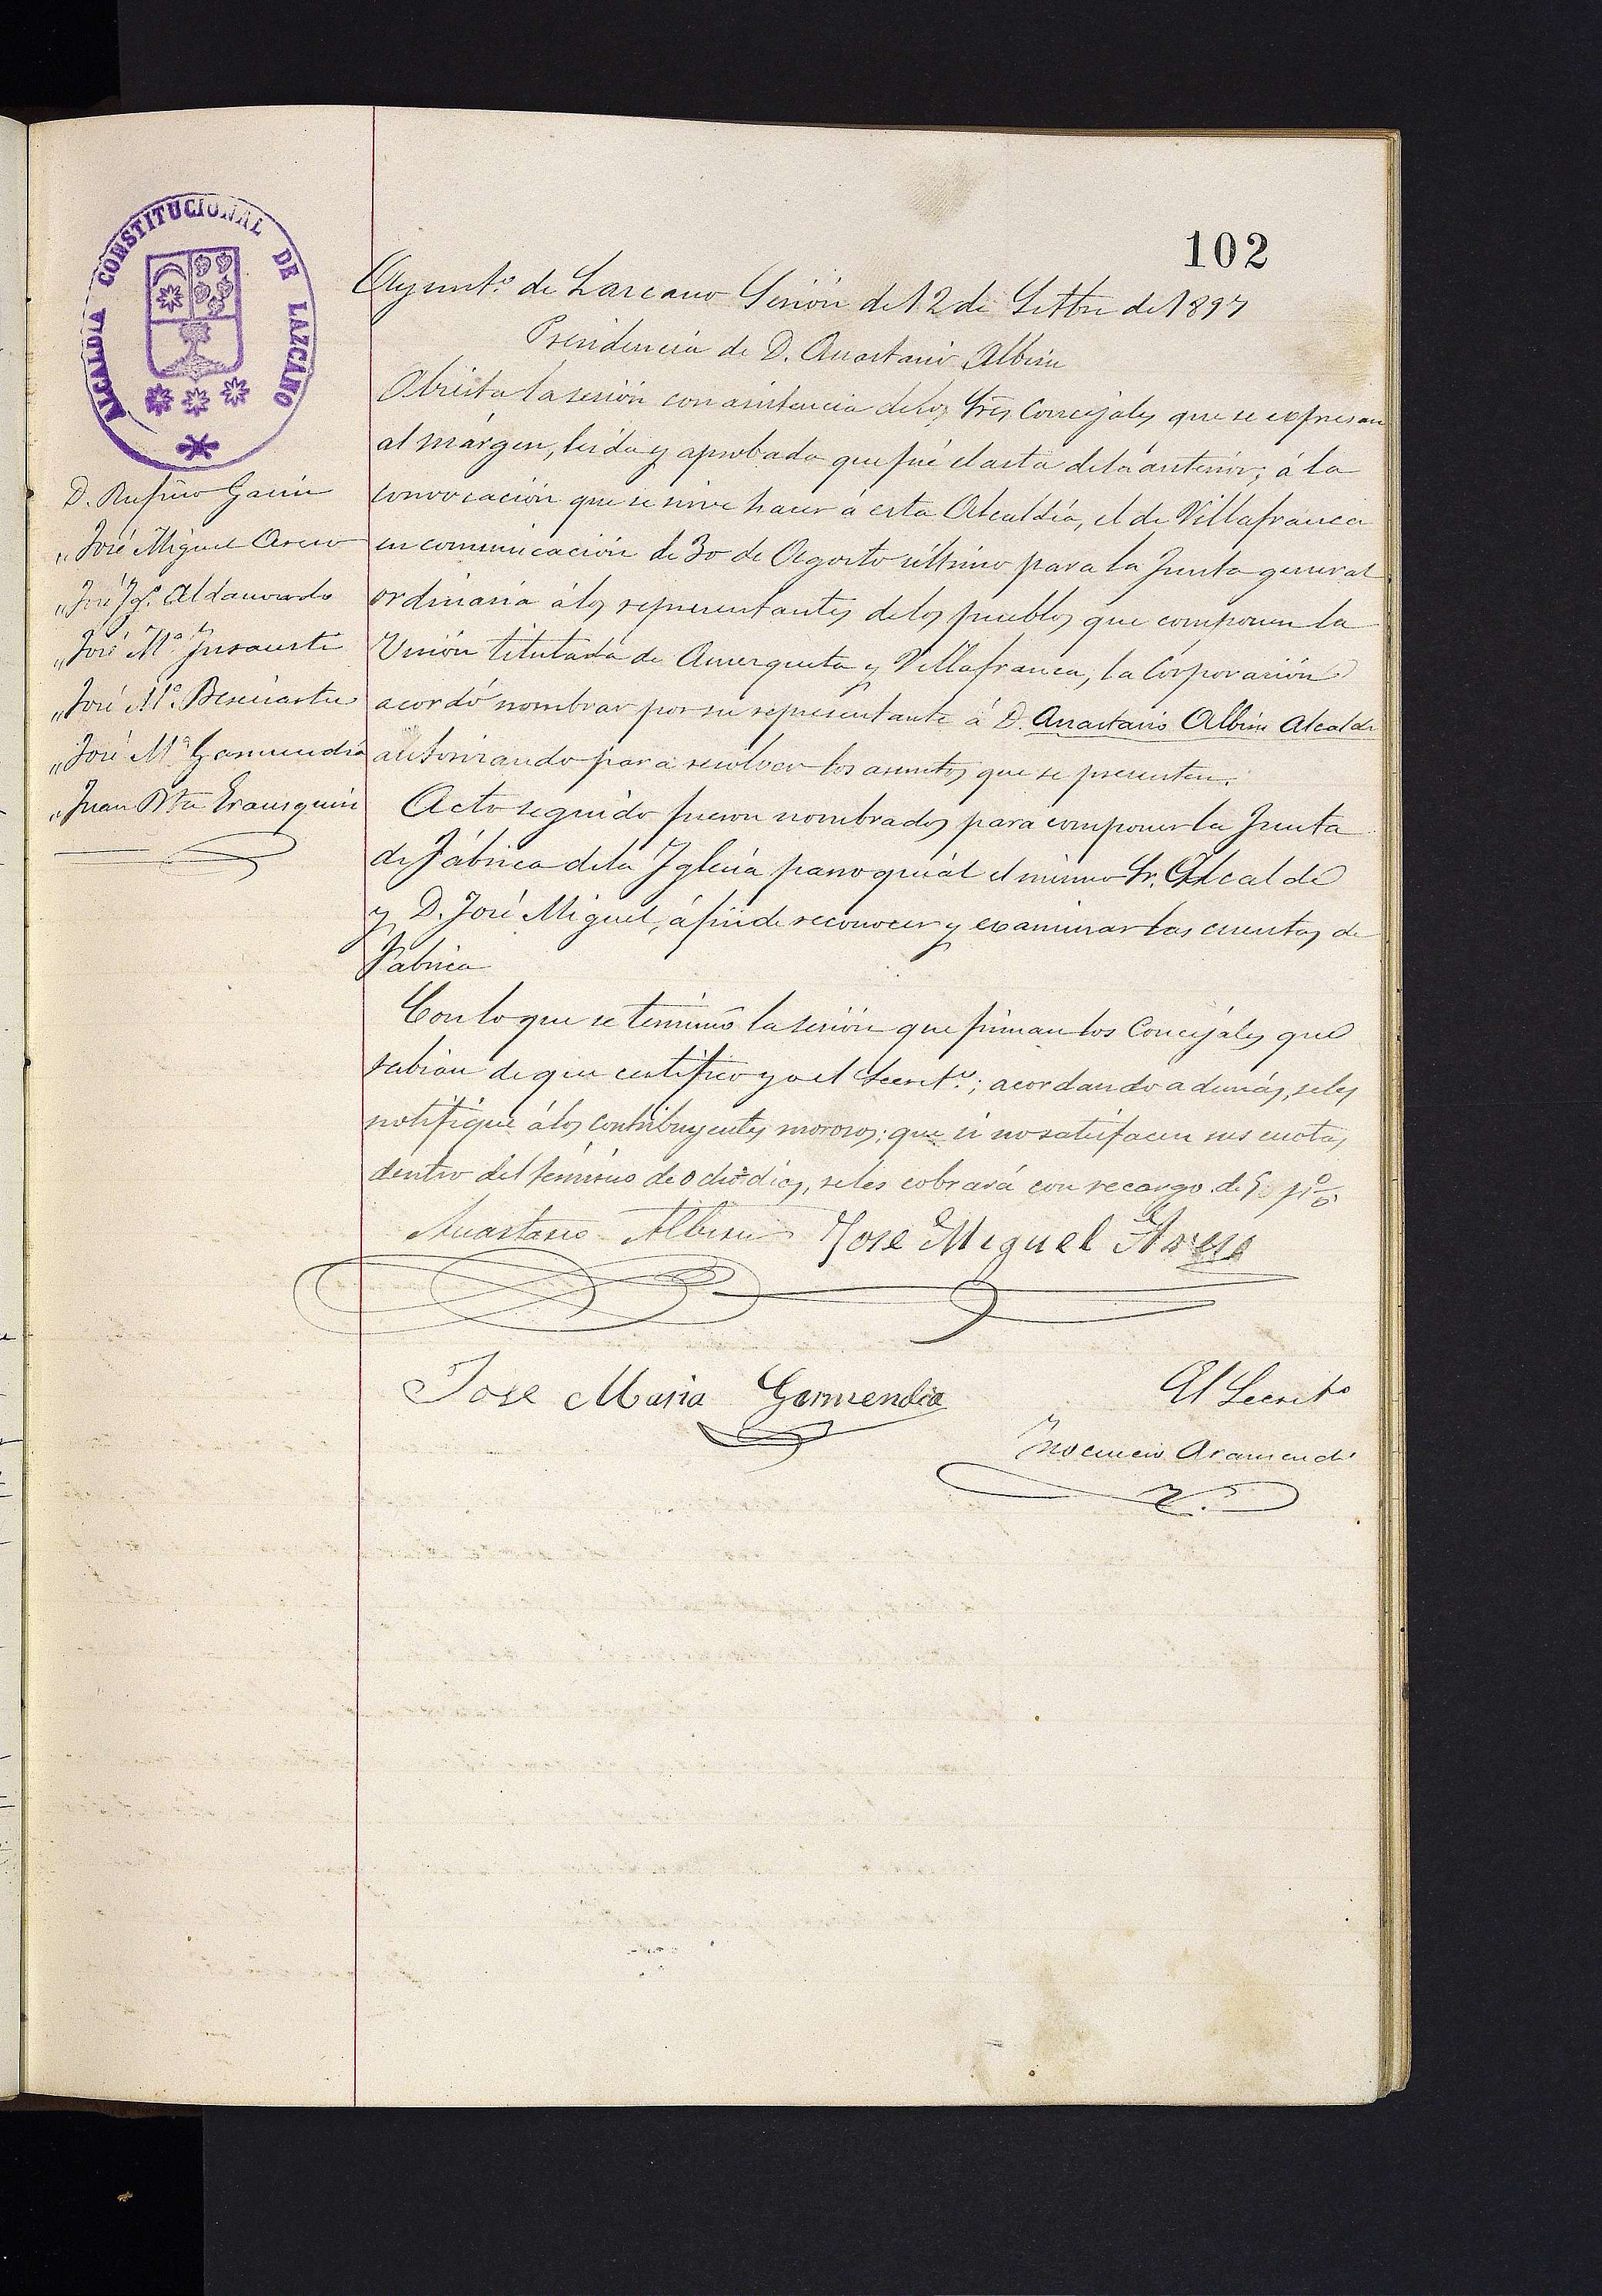 102
ALCALDIA CONSTITUCIONAL DE LAZCANO
Ayunto. de Lazcano Sesión del 12 de Setbre de 1897
Presidencia de D. Anastasio Albisu
D. Rufino Garin
„ José Miguel Areso
„ José Igo. Aldanondo
„ José Ma. Insausti
„ José Ma.
„ José Ma. Garmendia
„ Juan Bta Erausquin
Abierta la sesión con asistencia de los Sres Concejales que se expresan
al márgen, leida y aprobada que fué el acta de la anterior; á la
convocación que se sirve hacer á esta Alcaldía, el de Villafranca
en comunicación de 30 de Agosto último para la Junta general
ordinaria á los representantes de los pueblos que componen la
Unión titulada de Amezqueta y Villafranca, la Corporación
acordó nombrar por su representante á D. Anastasio Albisu Alcalde
autorizando para resolver los asuntos que se presenten.
Acto seguido fueron nombrados para componer la Junta
de Fábrica de la Iglesia parroquial el mismo Sr. Alcalde
y D. José Miguel, á fin de reconocer y examinar las cuentas de
Fabrica
Con lo que se terminó la sesión que firman los Concejales que
sabian de que certifico yo el Secreto.; acordando además, se les
notifique á los contribuyentes morosos; que si no satisfacen sus cuotas,
dentro del término de ocho dias, se les cobrará con recargo de p%
Anastasio Albisu Jose Miguel Areso
Jose Maria Garmendia
El Secreto
Inocencio Aramendi